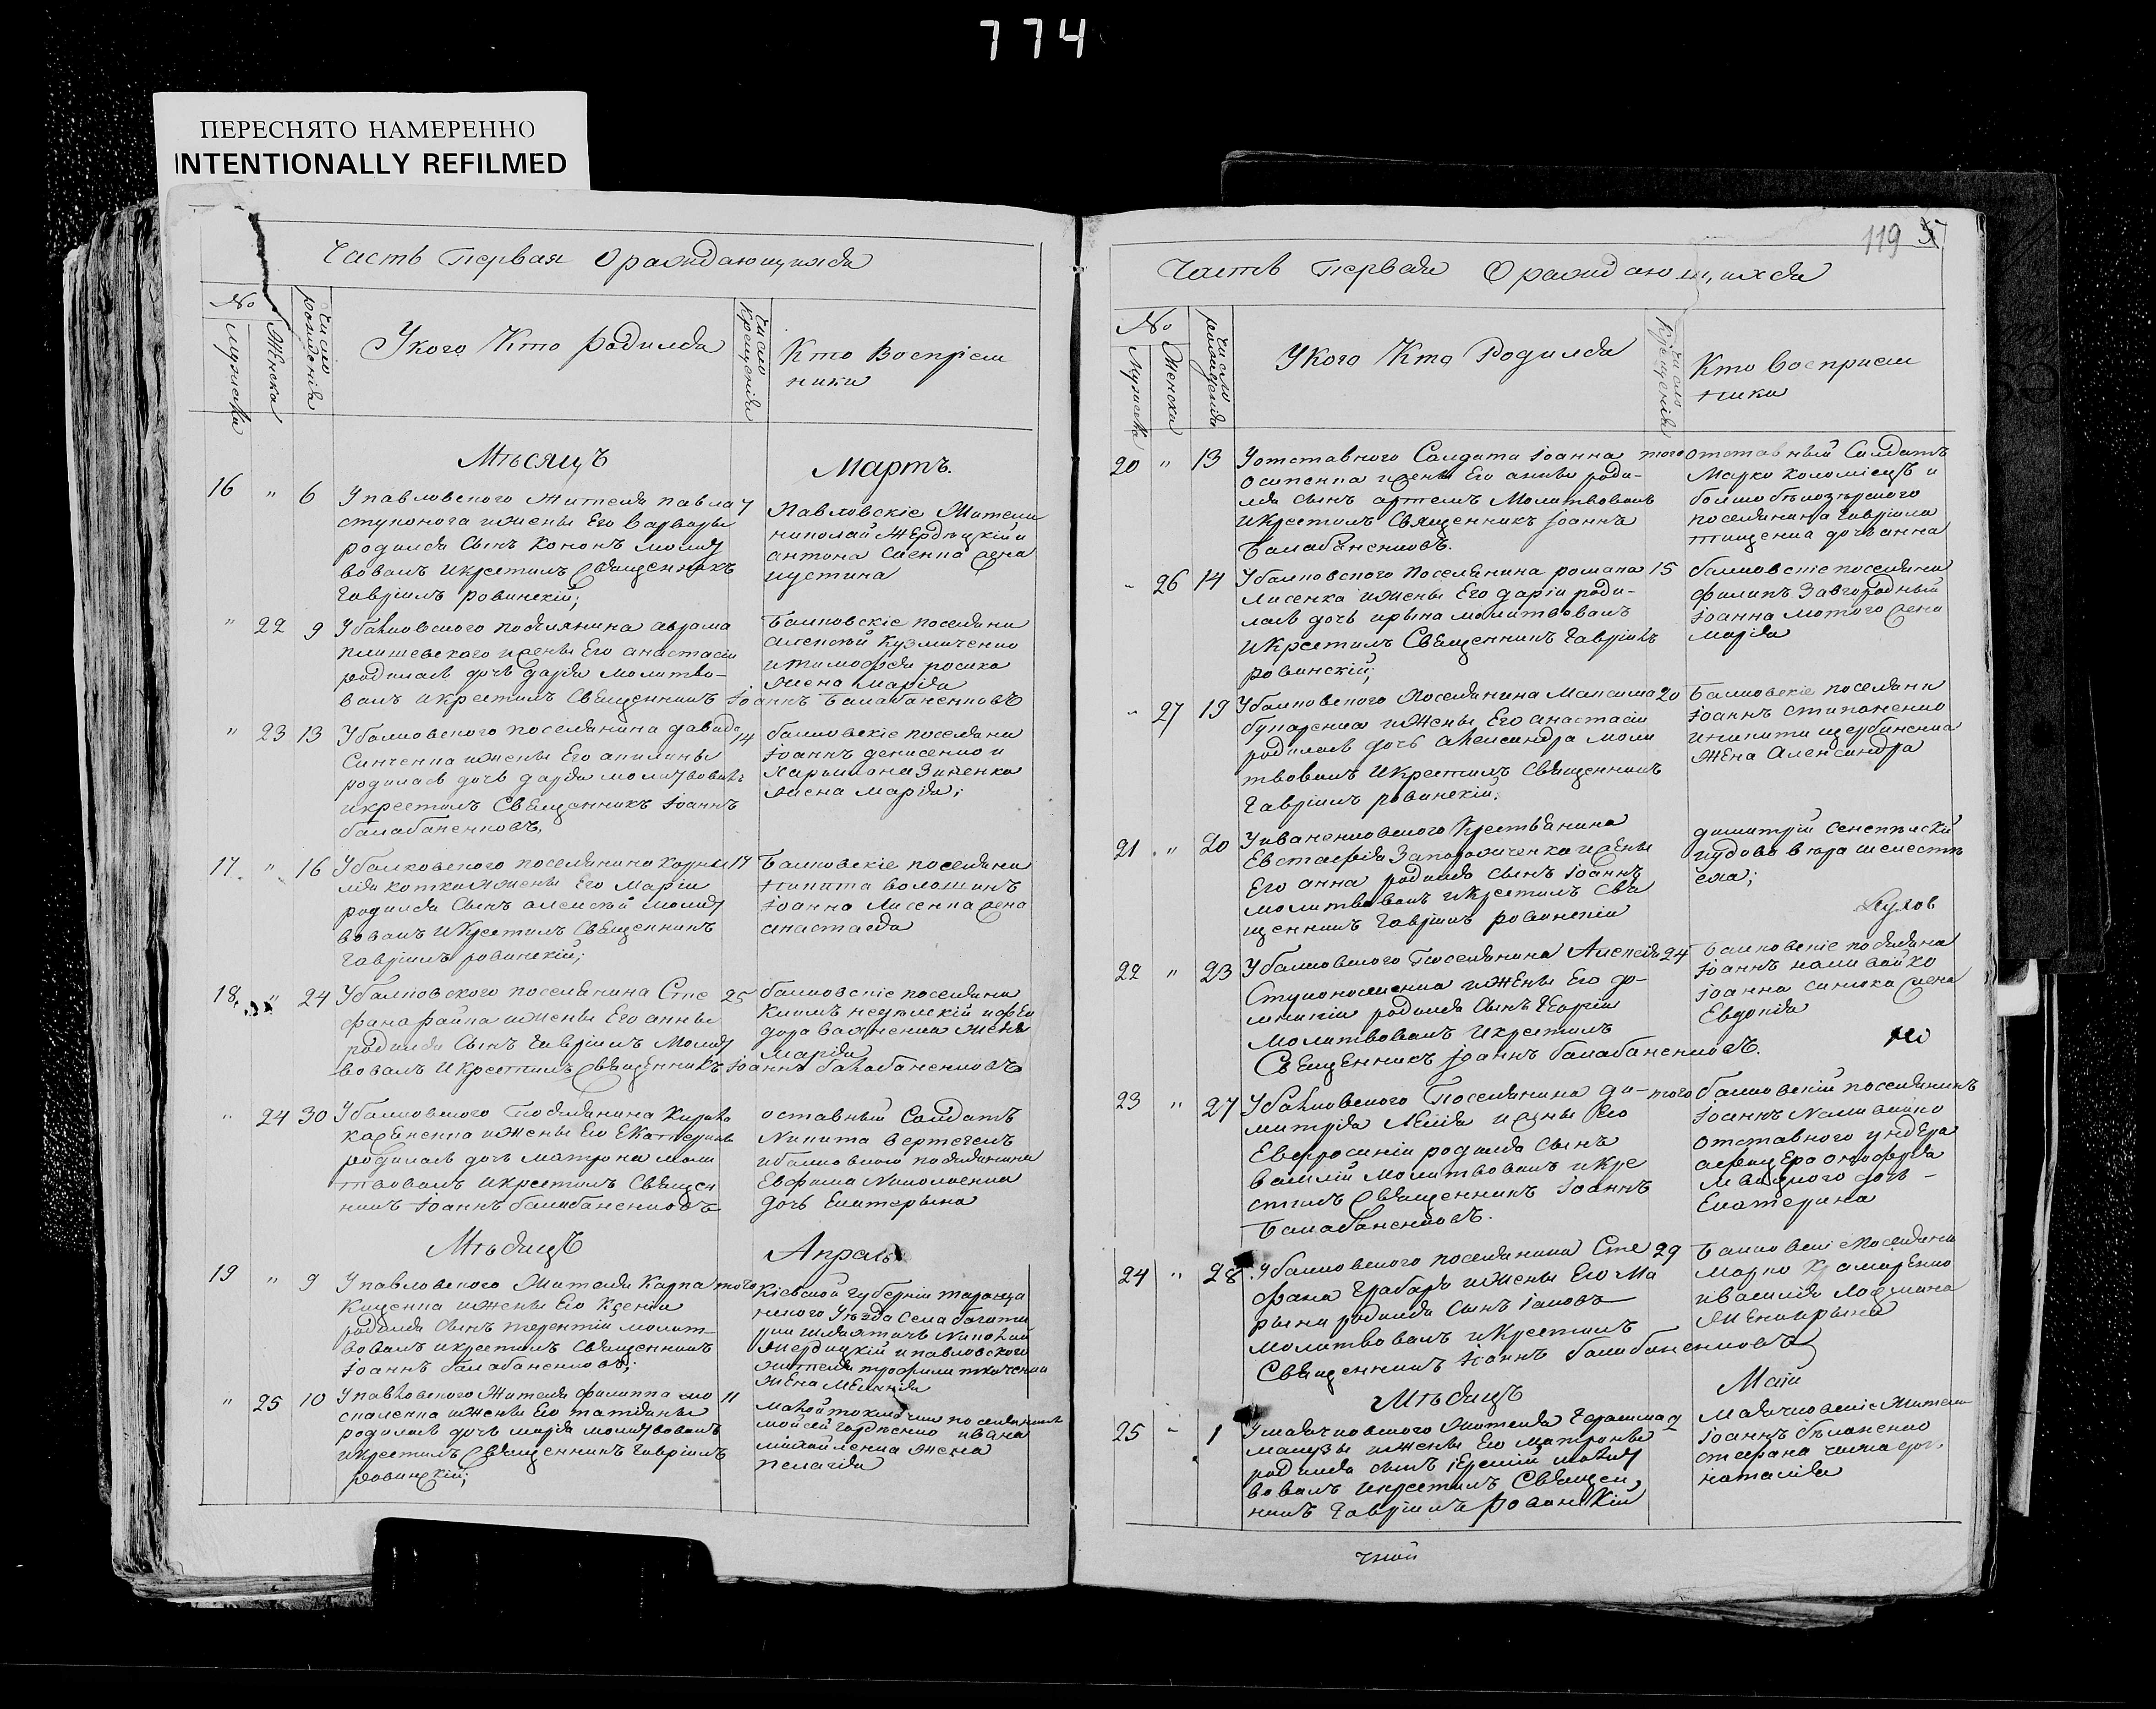 774
ПЕРЕСНЯТО НАМЕРЕННО
INTENTIONALLY REFILMED
Часть Первая О раждающихся
№
Мужеска
Женска
Число рождения
У кого Кто Родился
Число Крещенія
Кто Воспріем
ники
Мѣсяцъ
Мартъ.
16 " 6 У павловского жителя павла 7
ступонога и жены Его варвары
родился Сынъ Кононъ молит
вовалъ и крестилъ Священникъ
Гавріилъ ровинскій;
Павловскіе Жители
николай Жердецкій и
антона жена
иустина
" 22 9 У балковского поселянина аврама
и жены Его анастасіи
родилась дочь дарія молитво-
валъ и крестилъ Священникъ Іоаннъ Балабаненковъ
Балковскіе поселяни
алексѣй Кузмиченко
и тимофея носика
жена марія
" 23 13 У балковского поселянина давида 14
Синченка и жены Его акилины
родилась дочь дарія молитвовалъ
и крестилъ Священникъ Іоаннъ
балабаненковъ,
балковскіе поселяни
Іоаннъ денисенко и
Харитона Зиненка
жена марія;
17 " 16 У балковского поселянина корни 17
лія котка и жены Его Маріи
родился Сынъ алексѣй молит
вовалъ и Крестилъ Священникъ
Гавріилъ ровинскій;
Балковскіе поселяни
Никита волошинъ
Іоанна Лисенка жена
анастасія
18. " 24 У балковского поселянина Сте 25
фана файка и жены Его анны
родился Сынъ Гавріилъ Молит
вовалъ и Крестилъ Священникъ Іоаннъ балабаненковъ
балковскіе поселяни
Климъ и фео
дора важненка жена
Марія
" 24 30 У балковского Поселянина Кирила
и жены Его Екатерины
родилась дочь матрона моли
твовалъ и крестилъ Священ
никъ Іоаннъ балабаненковъ
оставный Солдатъ
Никита вертегелъ
и балковского поселянина
Евфима Николаенка
дочь Екатерына
Мѣсяцъ
Апрель
19 " 9 У павловского Жителя Карпа того
Киценка и жены Его Ксеніи
родился Сынъ терентій молит-
вовалъ и крестилъ Священникъ
Іоаннъ балабаненковъ;
Кіевской губерніи таранща
нского Уѣзда Села багати
рки шляхтичъ Николай
Жердецкій и павловского
жителя трофима ткаченка
Жена Меланія
" 25 10 У павловского Жителя филиппа мо 11
скаленка и жены Его татіаны
родилась дочь марія молитвовалъ
и крестилъ Священникъ Гавріилъ
ровинскій;
малой токмачки поселянинъ
мойсей Гордіенко ивана
михайленка жена
пелагія
119
Часть Первая О раждающихся
№
Мужеска
Женска
Число рожденія
У Кого Кто Родился
Число Крещенія
Кто Восприем
ники
20 " 13 У отставного Салдата Іоанна того
Осипенка и жены Его анны роди-
лся сынъ артемъ Молитвовалъ
и Крестилъ Священникъ Іоаннъ
Балабаненковъ.
отставный Солдатъ
Марко Коломіецъ и
болшо бѣлозѣрского
поселянина гавріила
тищенка дочь анна
" 26 14 У балковского Поселянина романа 15
Лисенка и жены Его даріи роди-
лась дочь ирына молитвовалъ
и Крестилъ Священникъ Гавріилъ
ровинскій;
балковскіе поселяни
филипъ Завгородный
Іоанна мотого жена
марія
" 27 19 У балковского Поселянина Максима 20
бугаренка и Жены Его анастасіи
родилась дочь александра моли
твовалъ и Крестилъ Священникъ
Гавріилъ ровинскій.
Балковскіе поселяни
Іоаннъ стипоненко
и никиты щербинска
Жена Александра
21 " 20 У иваненковского Крестьянина
Евстафія Запорожченка и жены
Его анна родился сынъ Іоаннъ
молитвовалъ и Крестилъ Свя
щенникъ Гавріилъ ровинскій
димитрій
ела;
22 " 23 У балковского Поселянина Алексія 24
Ступоножченка и жены Его
родился Сынъ Георгій
Молитвовалъ и Крестилъ
Священникъ Іоаннъ балабаненковъ.
Балковскіе поселяни
Іоаннъ наливайко
Іоанна синюка жена
Евдокія
23 " 27 У балковского Поселянина ди- того
митрія Леміа и жены его
Евфросиніи родился сынъ
василій Молитвовалъ и кре
стилъ Священникъ Іоаннъ
Балабаненковъ.
балковскій поселянинъ
Іоаннъ Наливайко
отставного ундера
афицера онофрія
дочь -
Екатерина
24 " 28 У балковского поселянина Сте 29
фана Грабаръ и жены Его Ма
рыни родился Сынъ Іаковъ
молитвовалъ и крестилъ
Священникъ Іоаннъ балабаненковъ
Балковскіе поселяни
Марко Крамаренко
и василія лоцмана
Жена ирына
Мѣсяцъ
Май
25 " 1 У маячковского Жителя Герасима 2
мацузы и жены Его матроны
родился сынъ Іеремій молит
вовалъ и крестилъ Священ
никъ Гавріилъ Рованскій
Маячковскіе Жители
Іоаннъ бѣланенко
стефана дочь
наталія